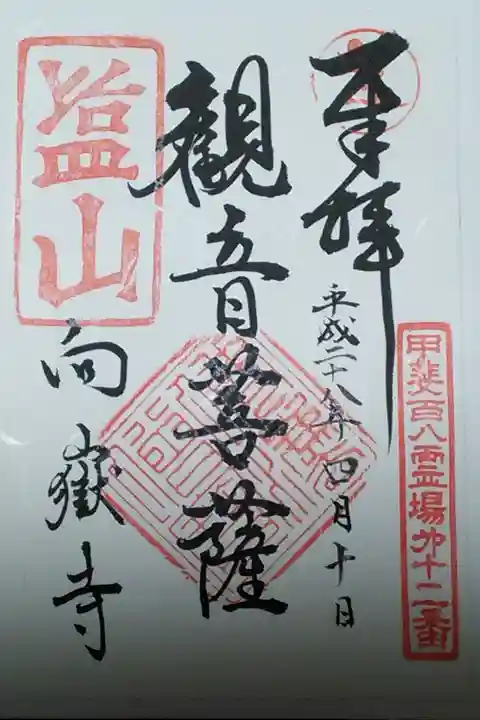 奉拝
平成二十八年四月十日
甲斐百八霊場第十二番
観音菩薩
塩山
向嶽寺